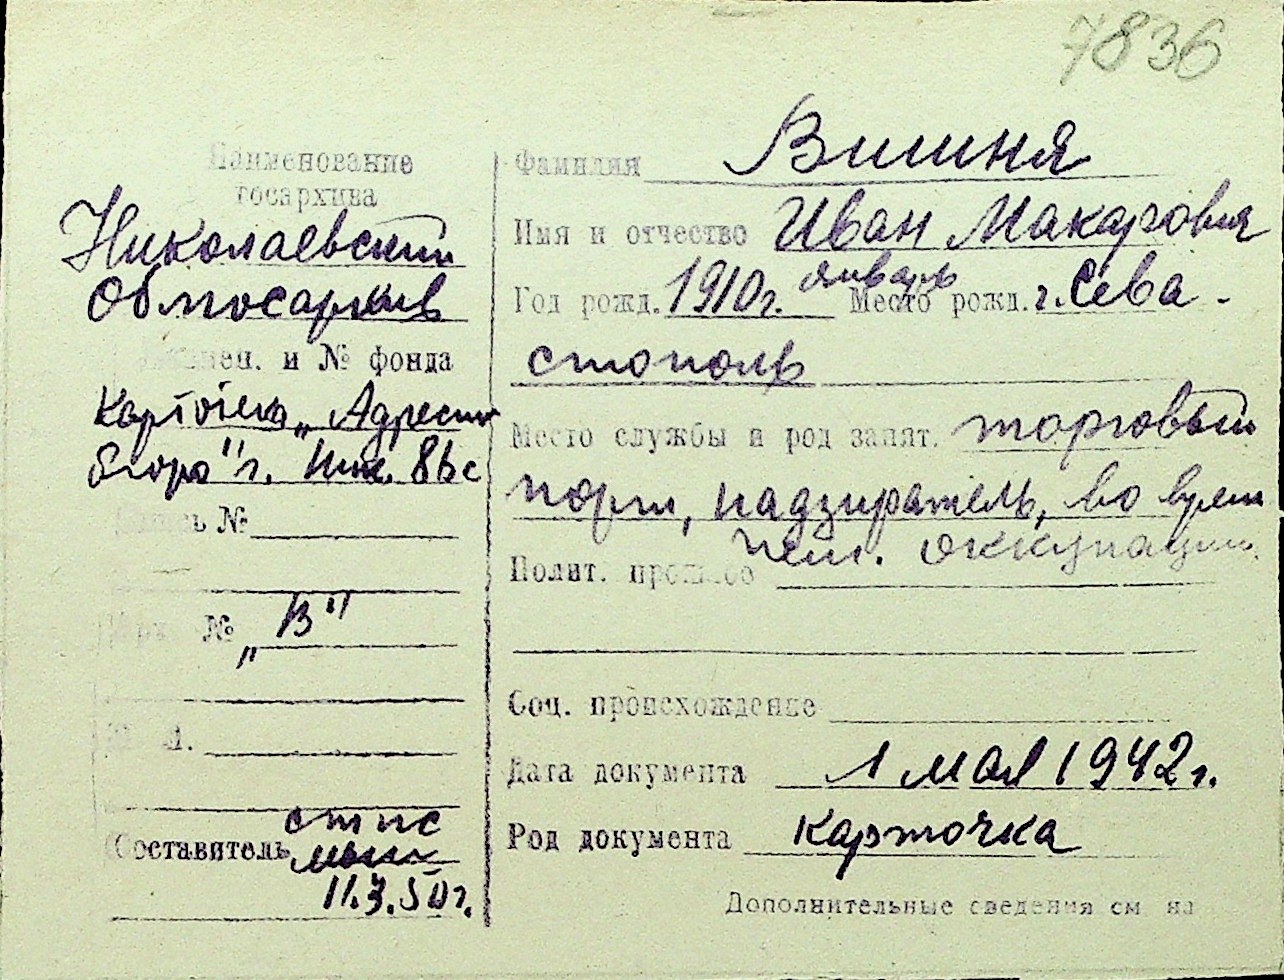 7836
Наименование
госархива
Николаевский
Облгосархив
и № фонда
Картотека „Адресн
бюро" г. Ник.
№
№ „В"
Составитель
11.3.50г.
Фамилия Вишня
Имя и отчество Иван Макарович
январь
Год рожд. 1910г. Место рожд. г. Сева-
стополь
Место службы и род занят. торговый
порт, надзиратель, во время
нем. оккупации.
Полит. прошлое
Соц. происхождение
Дата документа 1 мая 1942г.
Род документа карточка
Дополнительные сведения см на